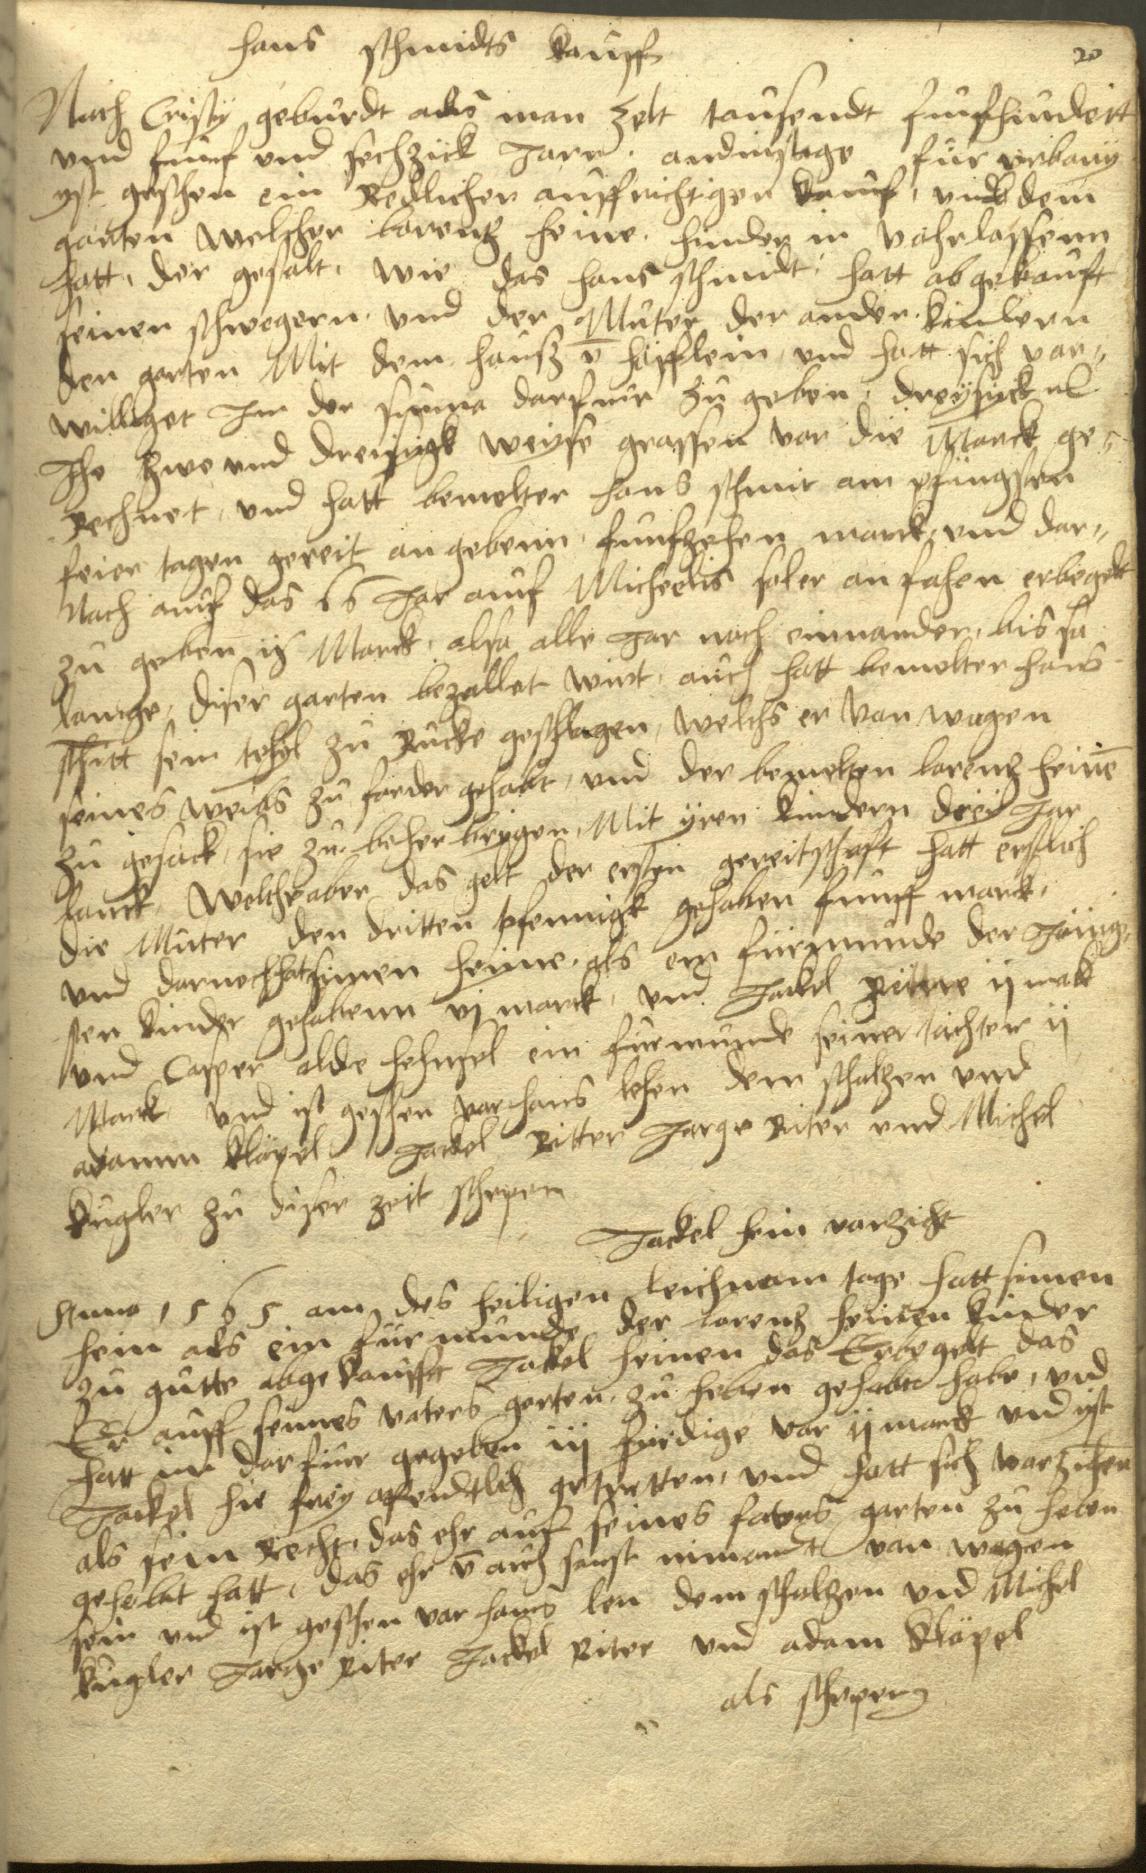 hans schmidts kauff
20
Nach Cristy geburdt als man zelt tausendt funfhundert
und funf und sechzick Jare. am dinstage fur urbany
yst geschen ein Redlicher auffrichtiger kauf, umb dem
garten welcher lorentz heine. hinder im vohrlassenn
hatt, der gestalt, wie das hans schmidt, hatt abgekauft
seinen schwegern und der Muter der ander kindern
den garten Mit dem hauß ū höfflein, und hatt sich vor„
williget Im der summa darfuir zu geben, dreysick
Ihe zwe und dreisigk weisse grossen vor die Marck ge„
Rechnet, und hatt bemelter hans schmit am pfingsten
feier tagen gereit an gebenn, funfzehen marck und dar„
Nach auf das 66 Jar auf Micheelis sol er an fahen erbegelt
zu geben Marck, also alle Jar noch einnander, bis so
lange, diser garten bezallet wirt, auch hatt bemelter hans
schmitt sein tehyl zu Rucke geschlagen, welchs er von wegen
seines weibs zu forder gehabt, und der bemelten lorentz heinē
zu gesack, sie zu beherbrigen, Mit yren kindern drei Jar
lanck, Welcher aber das gelt der ersten gereitschaft hatt erstlich
die Muter den dritten pfennigk gehaben funff marck,
und darnoch hat simen heine, als ein furmunde der Jung„
sten kinder gehabenn vj marck, und Jackel Rittere ij mark
und Casper alde hehnsel ein furmunde seiner tochter ij
Marck, und ist geschen vor hans lehen dem scholtzen und
adamm klöpel Jackel Ritter Jorge Riter und Michel
kugler zu diser zeit schepen
Jackel hein vorzicht
Anno 1565 am des heiligen leichnam tage hatt simen
hein als ein furmunde der lorentz heinen kinder
zu gutte abgekaufft Jackel heinen das Erbegelt das
Er auff seines vaters garten. zu heben gehabt habe, und
hatt im darfur gegeben iij firdige vor ij marck und yst
Jackel hie frey offendtlich getretten, und hatt sich vorzihen
als sein Recht, das ehr auf seines faters garten zu heben
gehabt hatt, das ehr ū auch sonst nimandt von wegen
sein und ist geschen vor hans len dem scholtzen und Michel
kugler Jorge Riter Jackel Riter und adam klöpel
als schepen